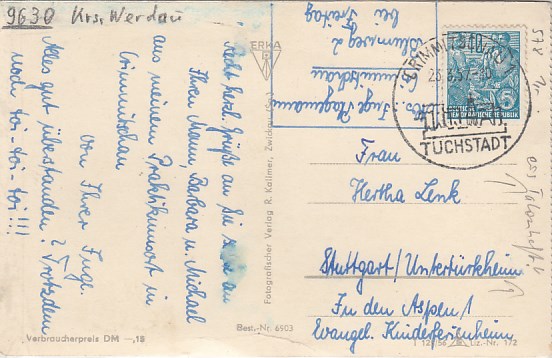 9630 Krs. Werdau
Recht herzl. Grüße an Sie sowie an
Ihren Mann, Barbara u. Michael
aus meinem Praktikumsort in
Crimmitschau
von Ihrer Inge.
Alles gut überstanden? Trotzdem
noch toi-toi-toi!!!
Verbraucherpreis DM -,15
ERKA
Fotografischer Verlag R. Kallmer, Zwickau (Sa.)
Best.-Nr. 6903
Abs. Inge Hagemann
Crimmitschau
Blumweg 2
bei Freitag
CRIMMITSCHAU
TUCHSTADT
DEUTSCHE
DEMOKRATISCHE REPUBLIK
Frau
Hertha Lenk
Stuttgart/Untertürkheim
In den Aspen/1
Evangel. Kinderferienheim
Liz.-Nr. 172